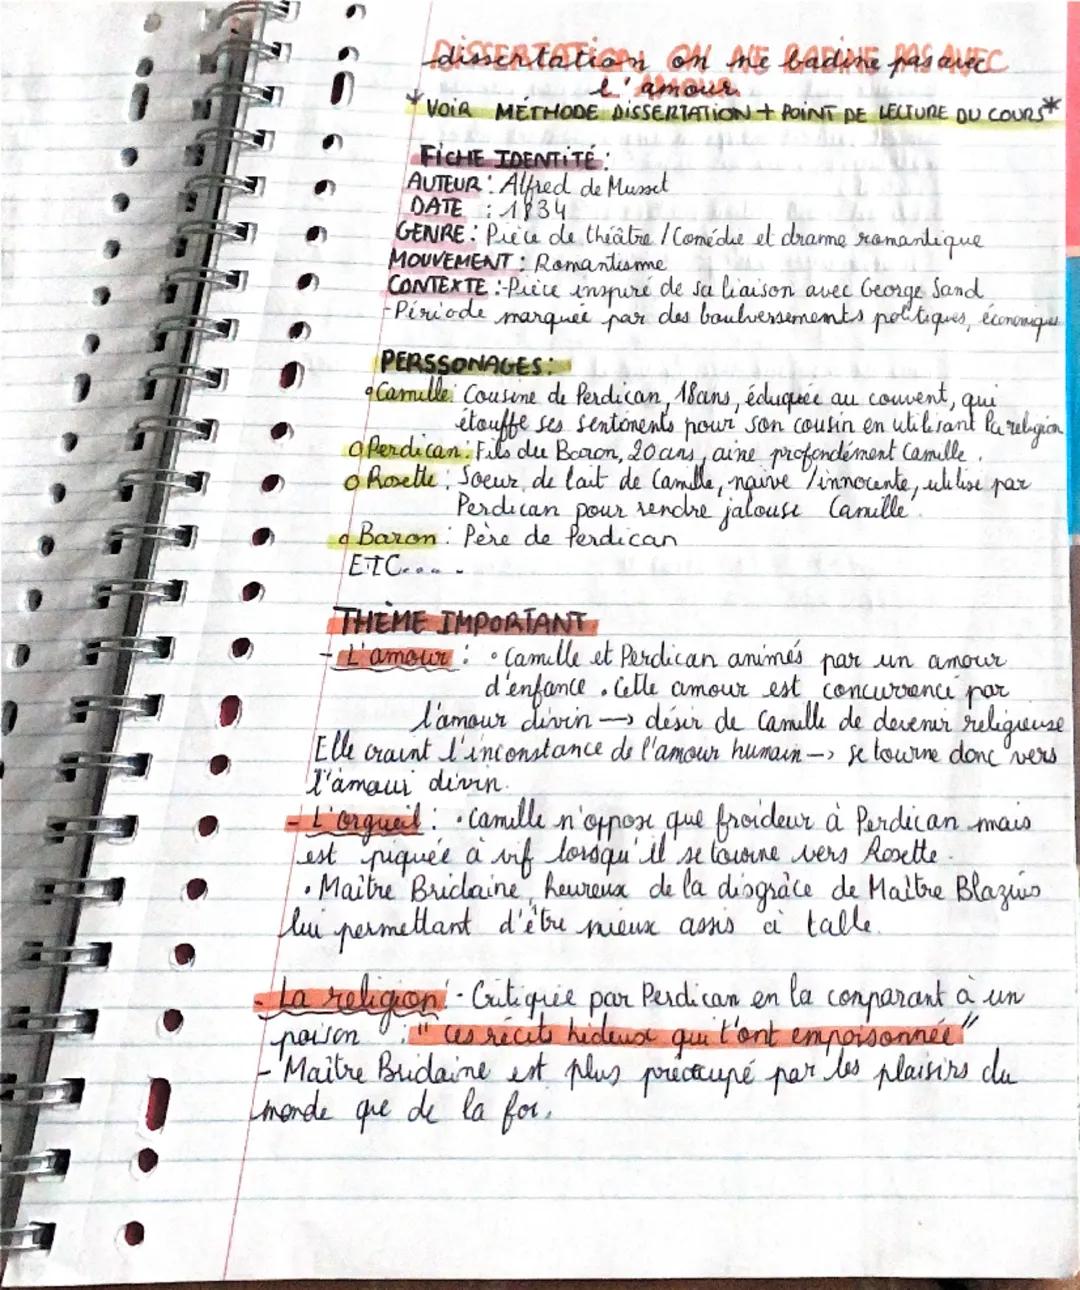 dissertation on ne badine pas avec
l'amour
*VOIR MÉTHODE DISSERTATION + POINT DE LECTURE DU COURS*
FICHE IDENTITÉ :
AUTEUR : Alfred de Musset
DATE : 1834
GENRE : Pièce de théâtre / Comédie et drame romantique
MOUVEMENT : Romantisme
CONTEXTE : -Pièce inspiré de sa liaison avec George Sand
-Période marquée par des boulversements politiques, économiques
PERSSONAGES :
Camille : Cousine de Perdican, 18ans, éduquée au couvent, qui
étouffe ses sentiments pour son cousin en utilisant la religion
Perdican : Fils du Baron, 20ans, aime profondément Camille.
Rosette : Soeur de lait de Camille, naïve / innocente, utilise par
Perdican pour rendre jalouse Camille
Baron : Père de Perdican
ETC.....
THÈME IMPORTANT
- L'amour : • Camille et Perdican animés par un amour
d'enfance. Cette amour est concurrencé par
l'amour divin → désir de Camille de devenir religieuse
Elle craint l'inconstance de l'amour humain → se tourne donc vers
l'amour divin.
- L'orgueil : • Camille n'oppose que froideur à Perdican mais
est piquée à vif lorsqu'il se tourne vers Rosette.
• Maître Bridaine, heureux de la disgrâce de Maître Blazius
lui permettant d'être mieux assis à table.
- La religion : - Critiquée par Perdican en la comparant à un
poison : "ces récits hideux qui t'ont empoisonnée"
- Maître Bridaine est plus préocupé par les plaisirs du
monde que de la foi.